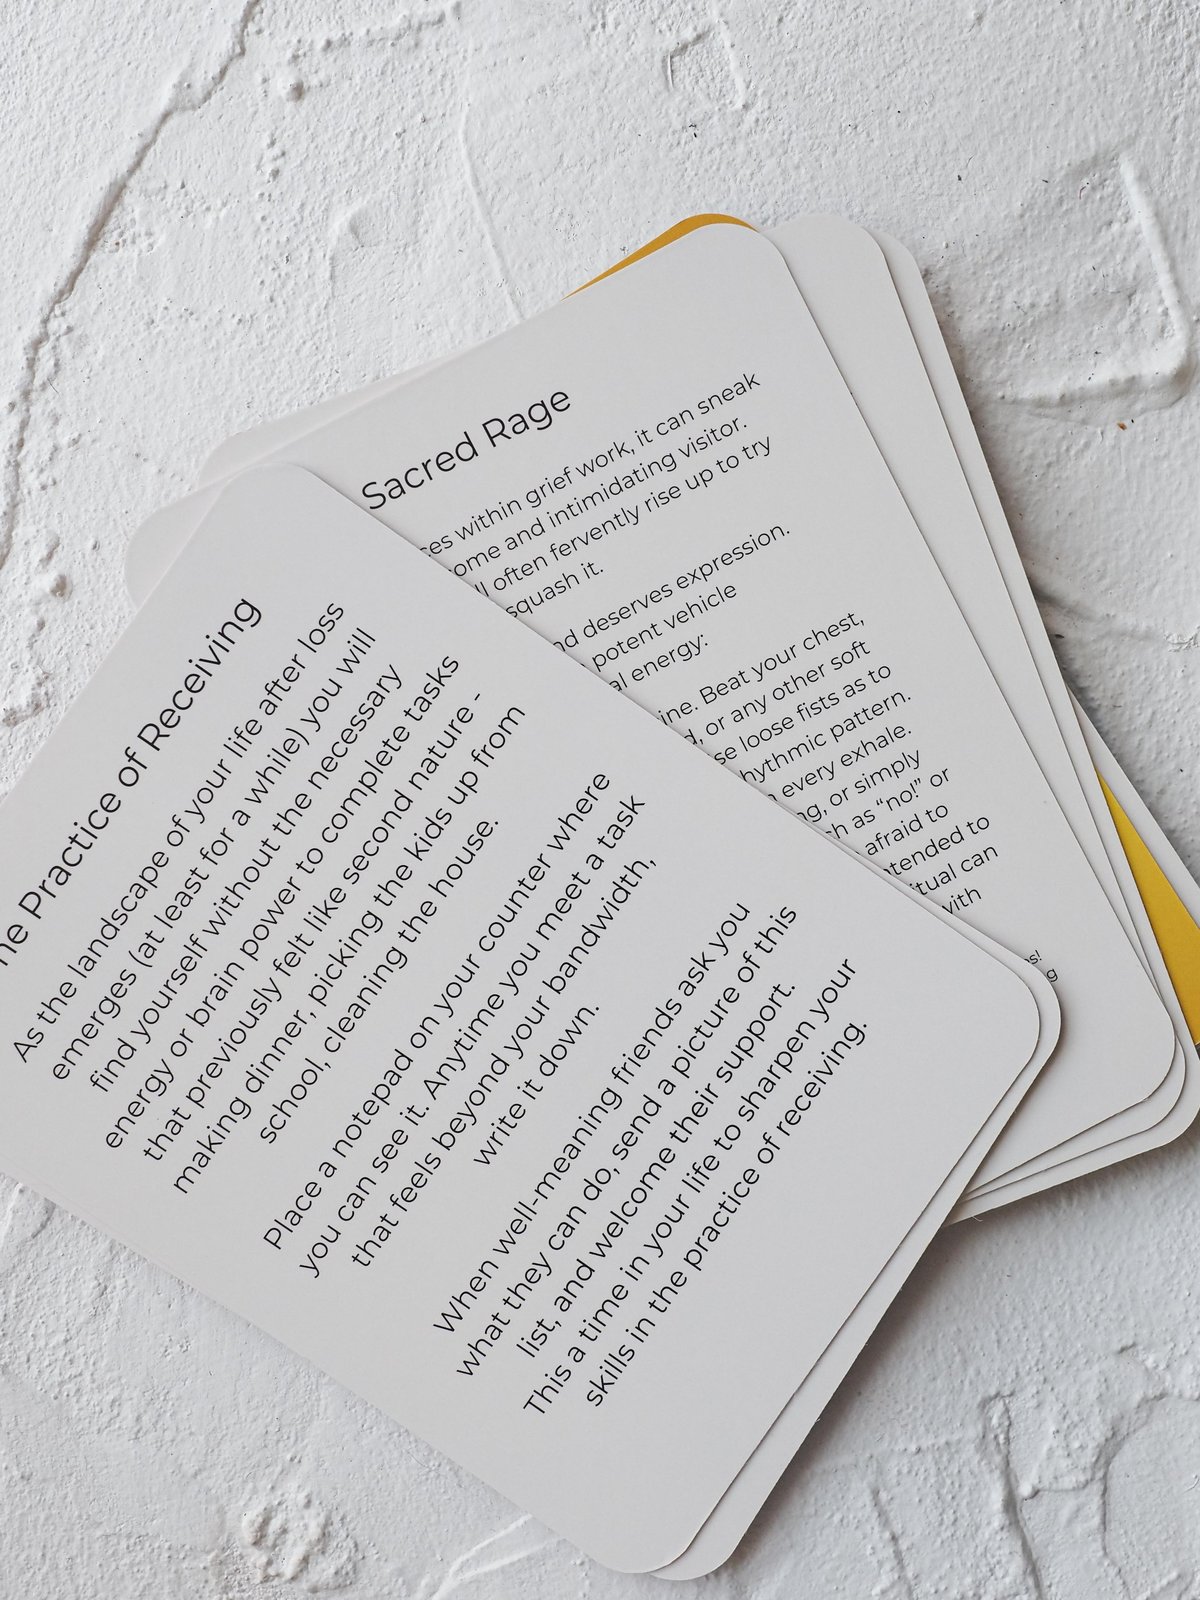 Practice of Receiving
As the landscape of your life after loss
emerges (at least for a while) you will
find yourself without the necessary
energy or brain power to complete tasks
that previously felt like second nature -
making dinner, picking the kids up from
school, cleaning the house.
Place a notepad on your counter where
you can see it. Anytime you meet a task
that feels beyond your bandwidth,
write it down.
When well-meaning friends ask you
what they can do, send a picture of this
list, and welcome their support.
This a time in your life to sharpen your
skills in the practice of receiving.
Sacred Rage
within grief work, it can sneak
and intimidating visitor.
often fervently rise up to try
squash it.
deserves expression.
potent vehicle
energy:
Beat your chest,
or any other soft
loose fists as to
pattern.
every exhale.
or simply
as “no!” or
afraid to
can
with